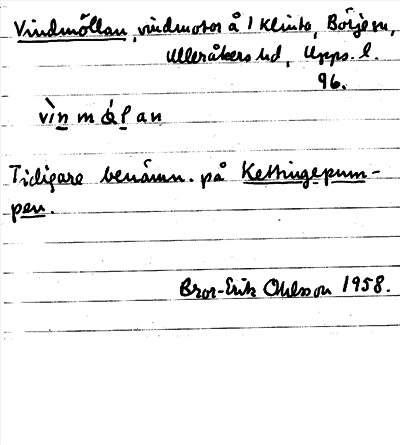 Vindmöllan, vindmotor å 1 Klinta, Börje sn,
Ulleråkers hd, Upps. l.
96.
vìn m ǿl an
Tidigare benämn. på Kettingepum-
pen.
Bror-Erik Ohlsson 1958.